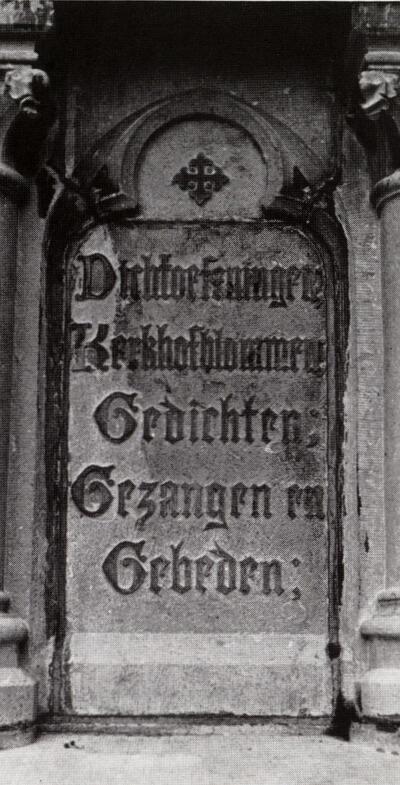 Dichtoefeningen;
Kerkhofblommen;
Gedichten;
Gezangen en
Gebeden;